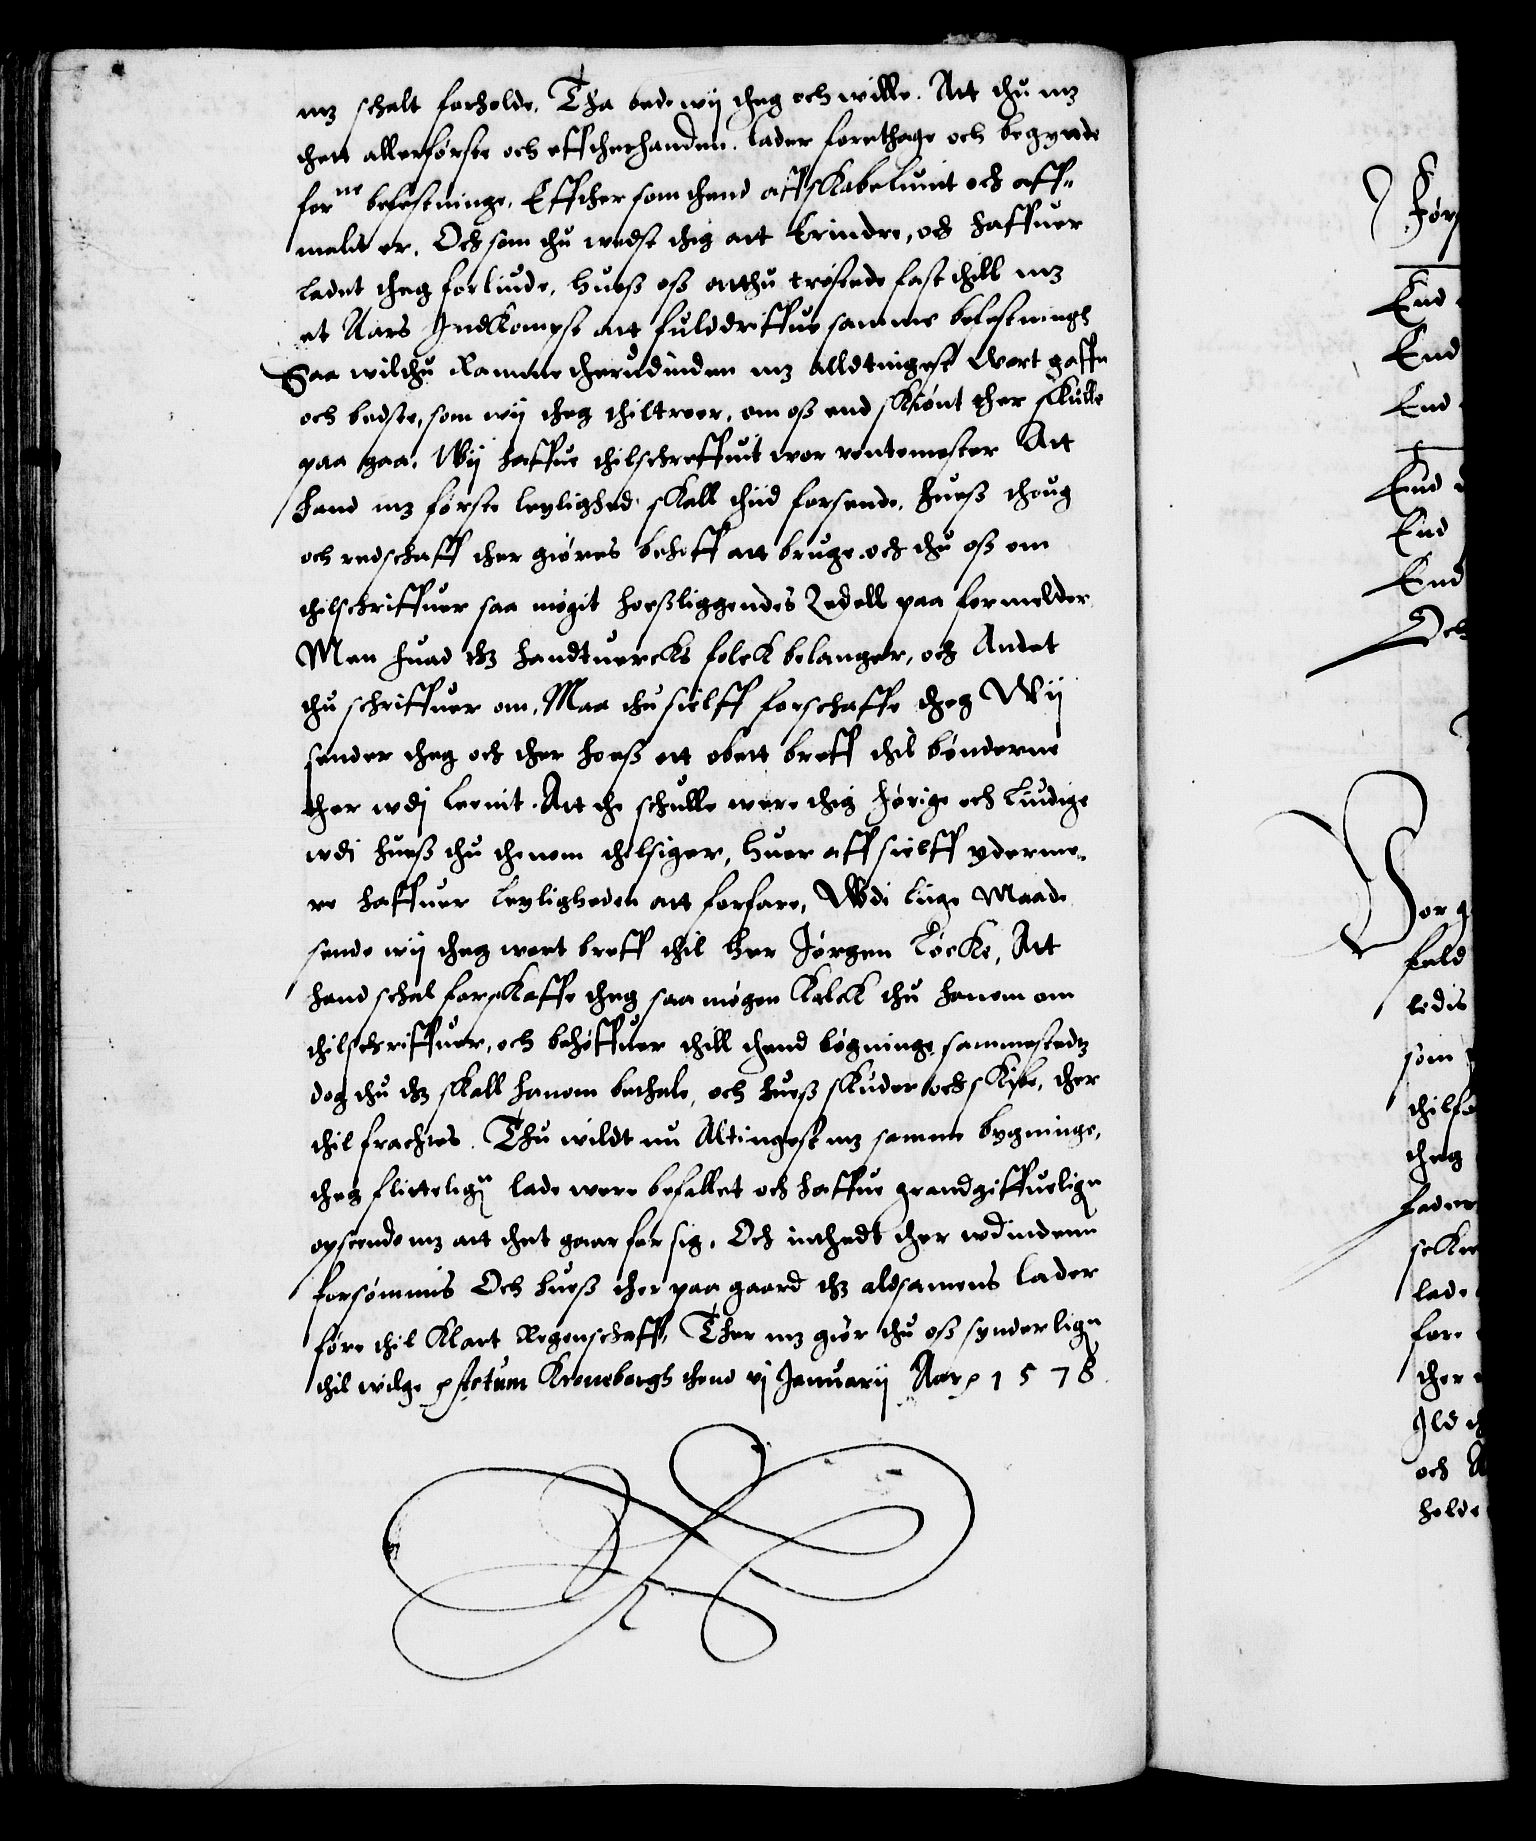 mz schalt forholde. Tha bede wij theg och wille. Att thu mz
thett allerførste och efftherhanden. lader forethage och begynde
forne befestninge, Effther som thend affskabeluint och aff-
malit er. Och som thu wedst thig att Erindre, och haffuer
ladet theg forliude, huess oss atthu trøstende fast thill mz
et Aars Indkompst att fulddriffue samme befestningh
Saa wilthu Ramme therudinden mz alldtingest wort gaffn
och bedste, som wij theg thiltroer, om oss end skiønt ther skulle
paa gaa. Wij haffue thilschreffuit wor rentemester Att
hand mz første leylighed skall thiid forsende, huess thoug
och redschaff ther giøres behoff att bruge. och thu oss om
thilschriffuer saa møgit hoessliggendes Zedell paa formelder.
Men huad thz handtuercks folck belanger, och Andet
thu schriffuer om, Maa thu sielff forschaffe theg Wij
sender theg och ther hoess ett obett breff thil bønderne
ther wdj leenit. Att the schulle were thig hørige och liudige
wdi huess thu thenom thilsiger, huer aff sielff yderme-
re haffuer leyligheden att forfare, Wdi lige Maade
sende wij theg wort breff thil her Jørgen Løcke, Att
hand schal forskaffe theg saa møgen Kalck thu hanom om
thilschriffuer, och behøffuer thill thend bøgninge sammestedtz
dog thu thz skall hanom bethale, och huess skuder och skibe, ther
thil frachtes. Thu wildt nu Altingest mz samme bygninge,
theg flitteligen lade were befallet och haffue grandgiffueligen
opseende mz att thet gaar for sig. Och inthedt ther wdindenn
forsømmis Och huess ther paa gaard thz aldsamens lader
føre thil Klart Regenschaff, Ther mz giør thu oss synderligen
thil wilge Actum Kroneborgh thend vj Januarij Aar 1578

Førs
End
End
End
End
End
End
Och
Vor g
feld
ledis
som
thilfø
theg
fader
lade
fore
ther
Ild
och
holde